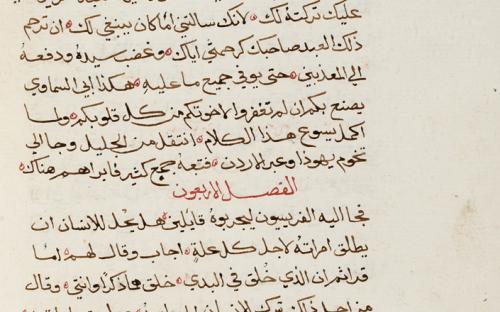 عليك تركته لك لانك سالتني اما كان ينبغي لك ان ترحم
ذلك العبد صاحبك كرحمتي اياك وغضب سيده ودفعه
الي المعذبين حتي يوفي جميع ما عليه هكذا ابي السماوي
يصنع بكم ان لم تغفروا لاخوتكم من كل قلوبكم ولما
اكمل يسوع هذا الكلام انتقل من الجليل وجا الي
تخوم يهوذا وعبر الاردن فتبعه جمع كثير فابراهم هناك
الفصل الاربعون
فجا اليه الفريسيون ليجربوه قايلين هل يحل للانسان ان
يطلق امراته لاجل كل علة اجاب وقال لهم اما
قراتم ان الذي خلق في البدي خلقهما ذكرا وانثي وقال
من اجل ذلك يترك الانسان